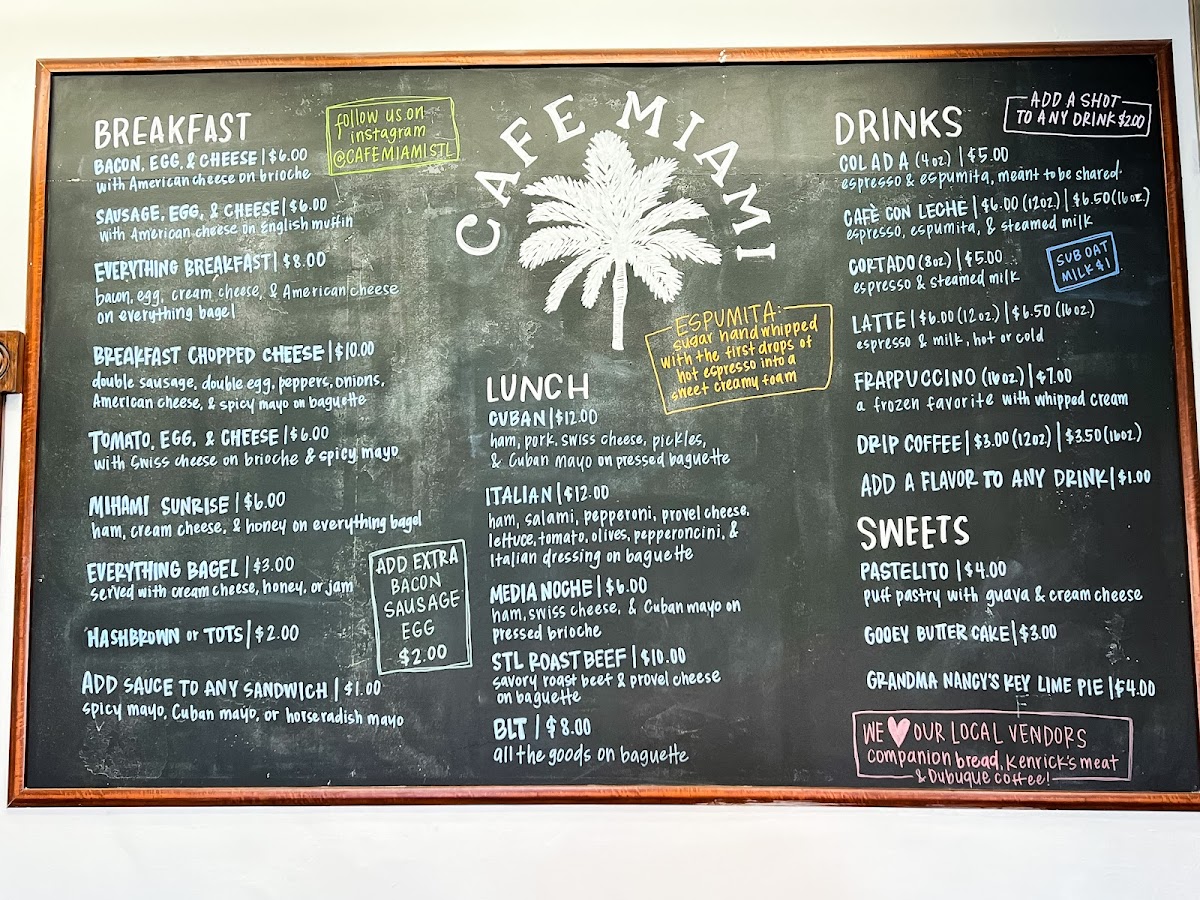 BREAKFAST
BACON, EGG, & CHEESE | $6.00
with American cheese on brioche
SAUSAGE, EGG, & CHEESE | $6.00
with American cheese on English muffin
EVERYTHING BREAKFAST | $8.00
bacon, egg, cream cheese, & American cheese
on everything bagel
BREAKFAST CHOPPED CHEESE | $10.00
double sausage, double egg, peppers, onions,
American cheese, & spicy mayo on baguette
TOMATO, EGG, & CHEESE | $6.00
with Swiss cheese on brioche & spicy mayo
MIHAMI SUNRISE | $6.00
ham, cream cheese, & honey on everything bagel
EVERYTHING BAGEL | $3.00
served with cream cheese, honey, or jam
HASHBROWN or TOTS | $2.00
ADD SAUCE TO ANY SANDWICH | $1.00
spicy mayo, Cuban mayo, or horseradish mayo
follow us on
instagram
@CAFEMIAMISTL
ADD EXTRA
BACON
SAUSAGE
EGG
$2.00
CAFE MIAMI
ESPUMITA:
sugar hand whipped
with the first drops of
hot espresso into a
sweet creamy foam
LUNCH
CUBAN | $12.00
ham, pork, swiss cheese, pickles,
& Cuban mayo on pressed baguette
ITALIAN | $12.00
ham, salami, pepperoni, provel cheese,
lettuce, tomato, olives, pepperoncini, &
Italian dressing on baguette
MEDIA NOCHE | $6.00
ham, swiss cheese, & Cuban mayo on
pressed brioche
STL ROAST BEEF | $10.00
savory roast beef & provel cheese
on baguette
BLT | $8.00
all the goods on baguette
DRINKS
ADD A SHOT
TO ANY DRINK $2.00
COLADA (4oz.) | $5.00
espresso & espumita, meant to be shared.
CAFÈ CON LECHE | $6.00 (12oz) | $6.50 (16oz.)
espresso, espumita, & steamed milk
CORTADO (8oz) | $5.00
espresso & steamed milk
SUB OAT
MILK $1
LATTE | $6.00 (12oz.) | $6.50 (16oz)
espresso & milk, hot or cold
FRAPPUCCINO (16oz) | $7.00
a frozen favorite with whipped cream
DRIP COFFEE | $3.00 (12oz) | $3.50 (16oz)
ADD A FLAVOR TO ANY DRINK | $1.00
SWEETS
PASTELITO | $4.00
puff pastry with guava & cream cheese
GOOEY BUTTER CAKE | $3.00
GRANDMA NANCY'S KEY LIME PIE | $4.00
WE ♥ OUR LOCAL VENDORS
companion bread, Kenrick's meat
& Dubuque coffee!